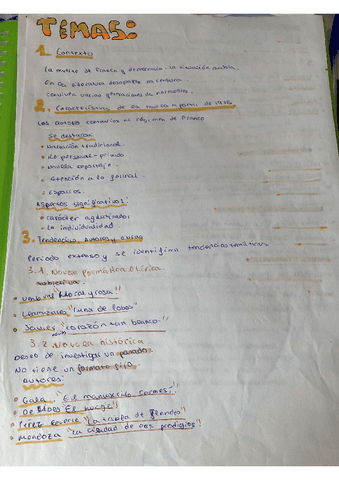 TEMAS:
1. Contexto
La muerte de Franco y democracia - la situación cambia
En la literatura desaparece la censura
Conviven varias generaciones de novelistas.
2. Características de la novela a partir de 1975
Los autores contrarios al régimen de Franco
Se destacan
• Narración tradicional.
• Lo personal - privado
• Novela reportaje.
• Atención a lo formal
• Espacios.
Aspectos significativos:
• carácter aglutinador
• la individualidad
3. Tendencias, autores y obras
Periodo extenso y se identifican tendencias temáticas
3.1. Novela poemática o lírica
subjetivas.
• Umbral "Mortal y rosa"
• Llamazares "Luna de lobos"
• Javier "corazón tan blanco."
3.2 Novela histórica
Deseo de investigar un pasado
No tiene un formato fijo.
Autores:
• Gala, "El manuscrito carmesí"
• Delibes "El hereje"
• Pérez Reverte "La tabla de Flandes"
• Mendoza "La ciudad de los prodigios"